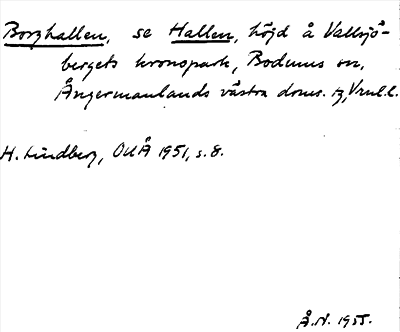 Borghallen, se Hallen, höjd å Vallsjö-
bergets kronopark, Bodums sn,
Ångermanlands västra doms. tg, Vnl.l.
H. Lindberg, OUÅ 1951, s. 8.
Å.N. 1955.